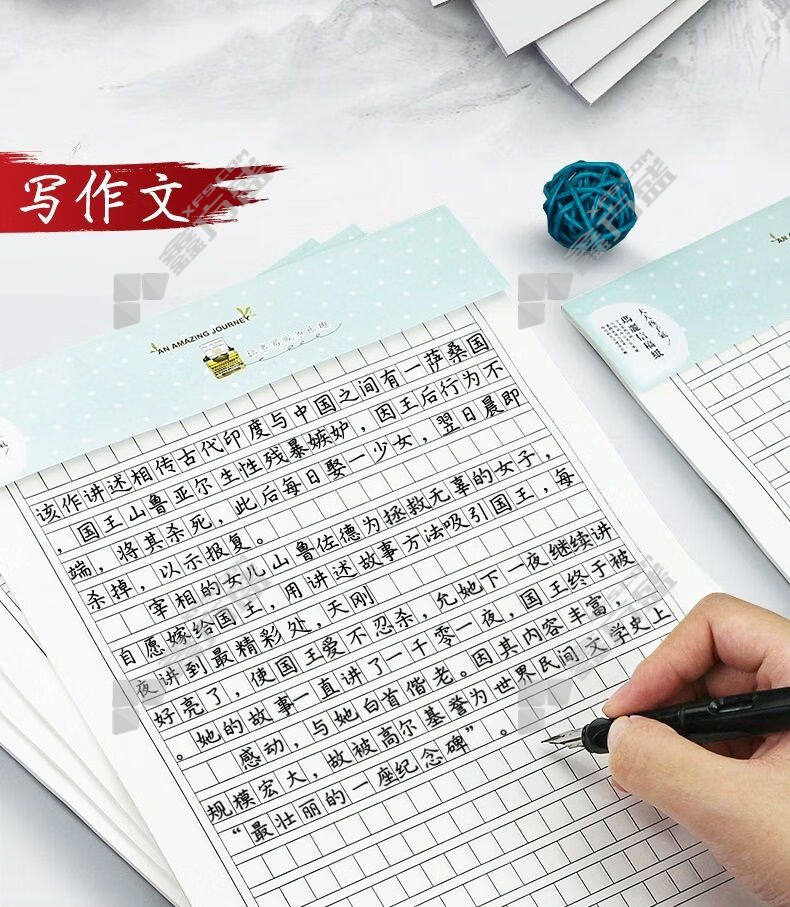 写作文
AN AMAZING JOURNEY
让书写成为乐趣
AN AM
信稿紙
该作讲述相传古代印度与中国之间有一萨桑国
，国王山鲁亚尔生性残暴嫉妒，因王后行为不
端，将其杀死，此后每日娶一少女，翌日晨即
杀掉，以示报复。
宰相的女儿山鲁佐德为拯救无辜的女子，
自愿嫁给国王，用讲述故事方法吸引国王，每
夜讲到最精彩处，天刚
好亮了，使国王爱不忍杀，允她下一夜继续讲
。她的故事一直讲了一千零一夜，国王终于被
感动，与她白首偕老。因其内容丰富，
规模宏大，故被高尔基誉为世界民间文学史上
“最壮丽的一座纪念碑”。
鑫方盛
鑫方盛
鑫方盛
鑫方盛